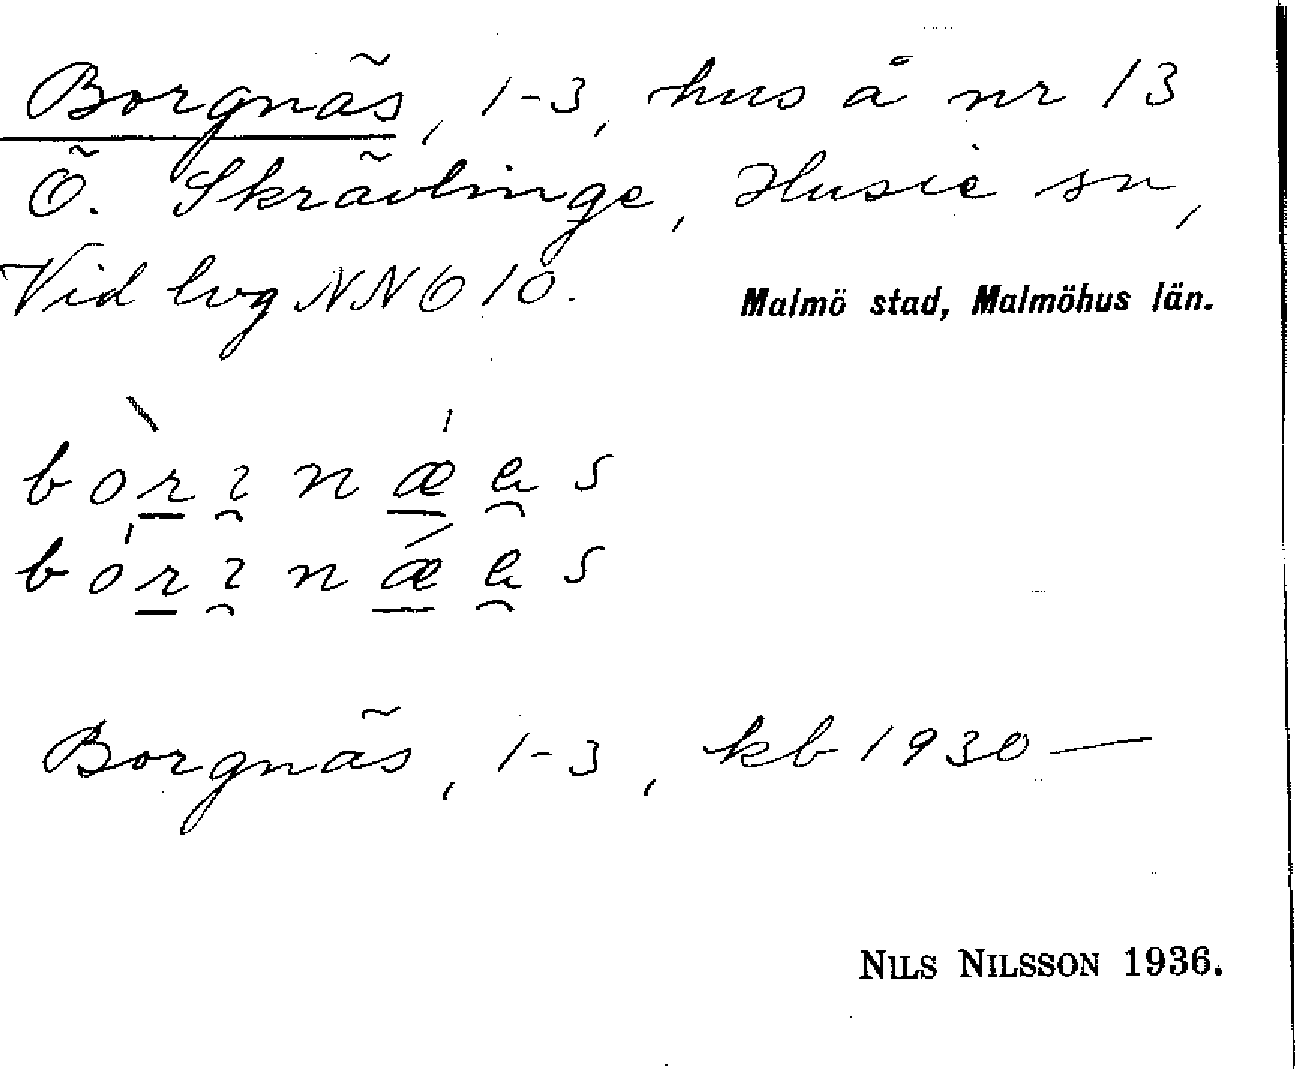 Borgnäs, 1-3, hus å nr 13
Ö. Skrävlinge, Husie sn,
Vid lvg NNO 10.
Malmö stad, Malmöhus län.
Borgnäs, 1-3, kb 1930—
NILS NILSSON 1936.